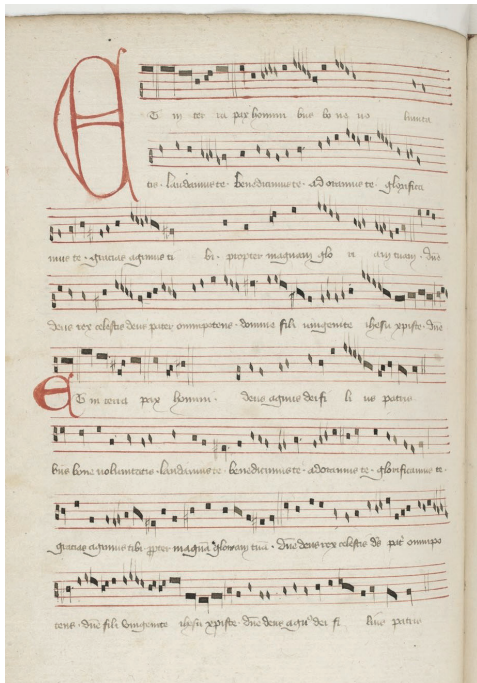 Et in ter ra pax homini bus bo ne vo luntа
tis · laudamus te · benedicimus te · adoramus te · glorifica
mus te · gracias agimus ti bi · propter magnam glo ri am tuam · dne
deus rex celestis deus pater omnipotens · domine fili unigenite ihesu xpiste · dne
Et in terra pax homini · deus agnus dei fi li us patris
bus bone voluntatis · laudamus te · benedicimus te · adoramus te · glorificamus te ·
gracias agimus tibi ppter magnā gloriam tuā · dne deus rex celestis ds pat omnipo
tens · dne fili unigenite ihesu xpiste · dne deus agn9 dei fi lius patris